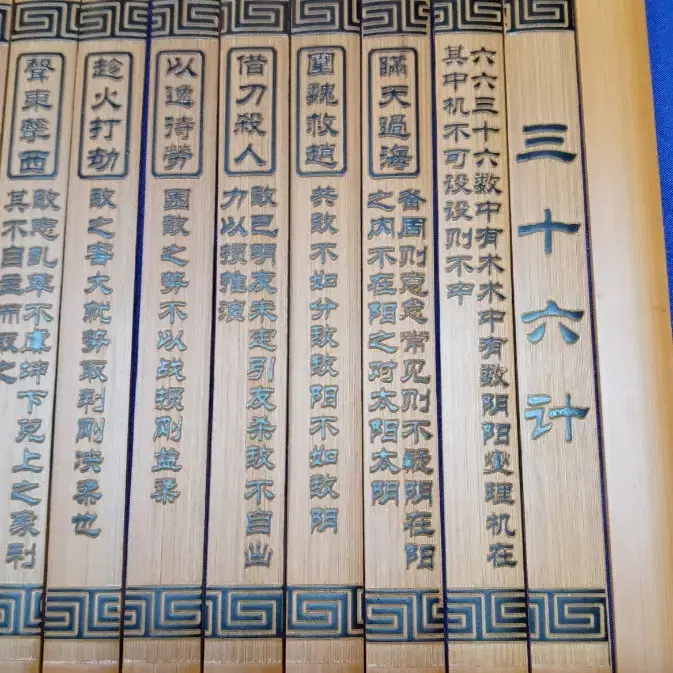 三十六计
六六三十六数中有术术中有数阴阳燮理机在
其中机不可设设则不中
瞞天過海
备周则意怠常见则不疑阴在阳
之内不在阳之对太阳太阴
圍魏救趙
共敌不如分敌敌阳不如敌阴
借刀殺人
敌已明友未定引友杀敌不自出
力以损推演
以逸待勞
困敌之势不以战损刚益柔
趁火打劫
敌之害大就势取利刚决柔也
聲東擊西
敌志乱萃不虞坤下兑上之象利
其不自主而取之